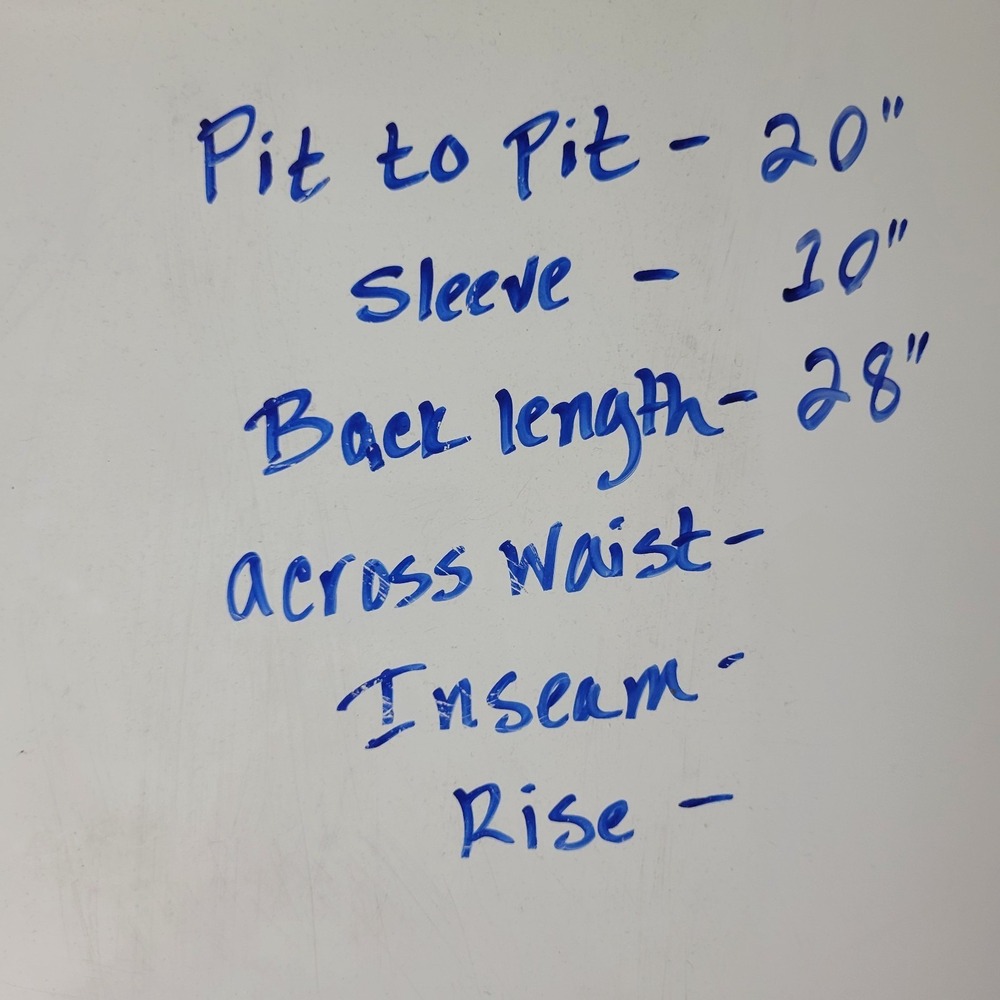 Pit to Pit - 20"
Sleeve - 10"
Back length - 28"
across waist -
Inseam -
Rise -